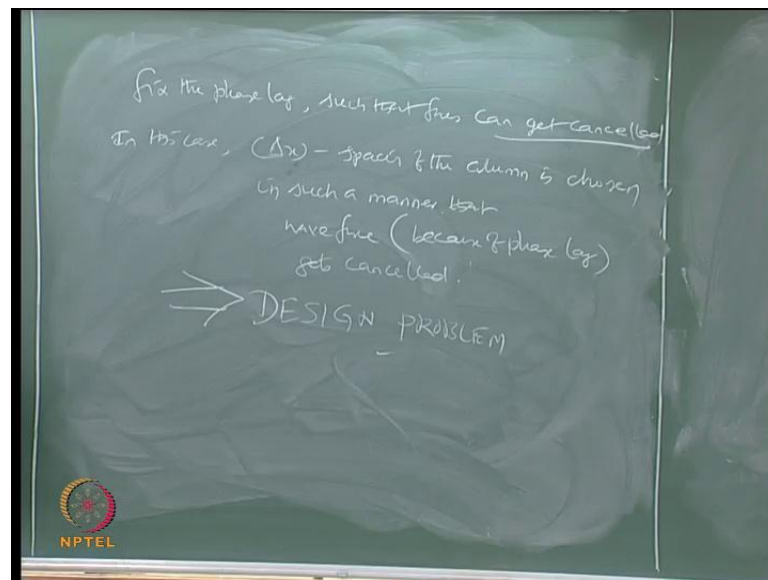 fix the phase lag, such that forces can get cancelled
In this case, (Δx) - spacing of the column is chosen
in such a manner that
wave force (because of phase lag)
gets cancelled!
⇒ DESIGN PROBLEM
NPTEL